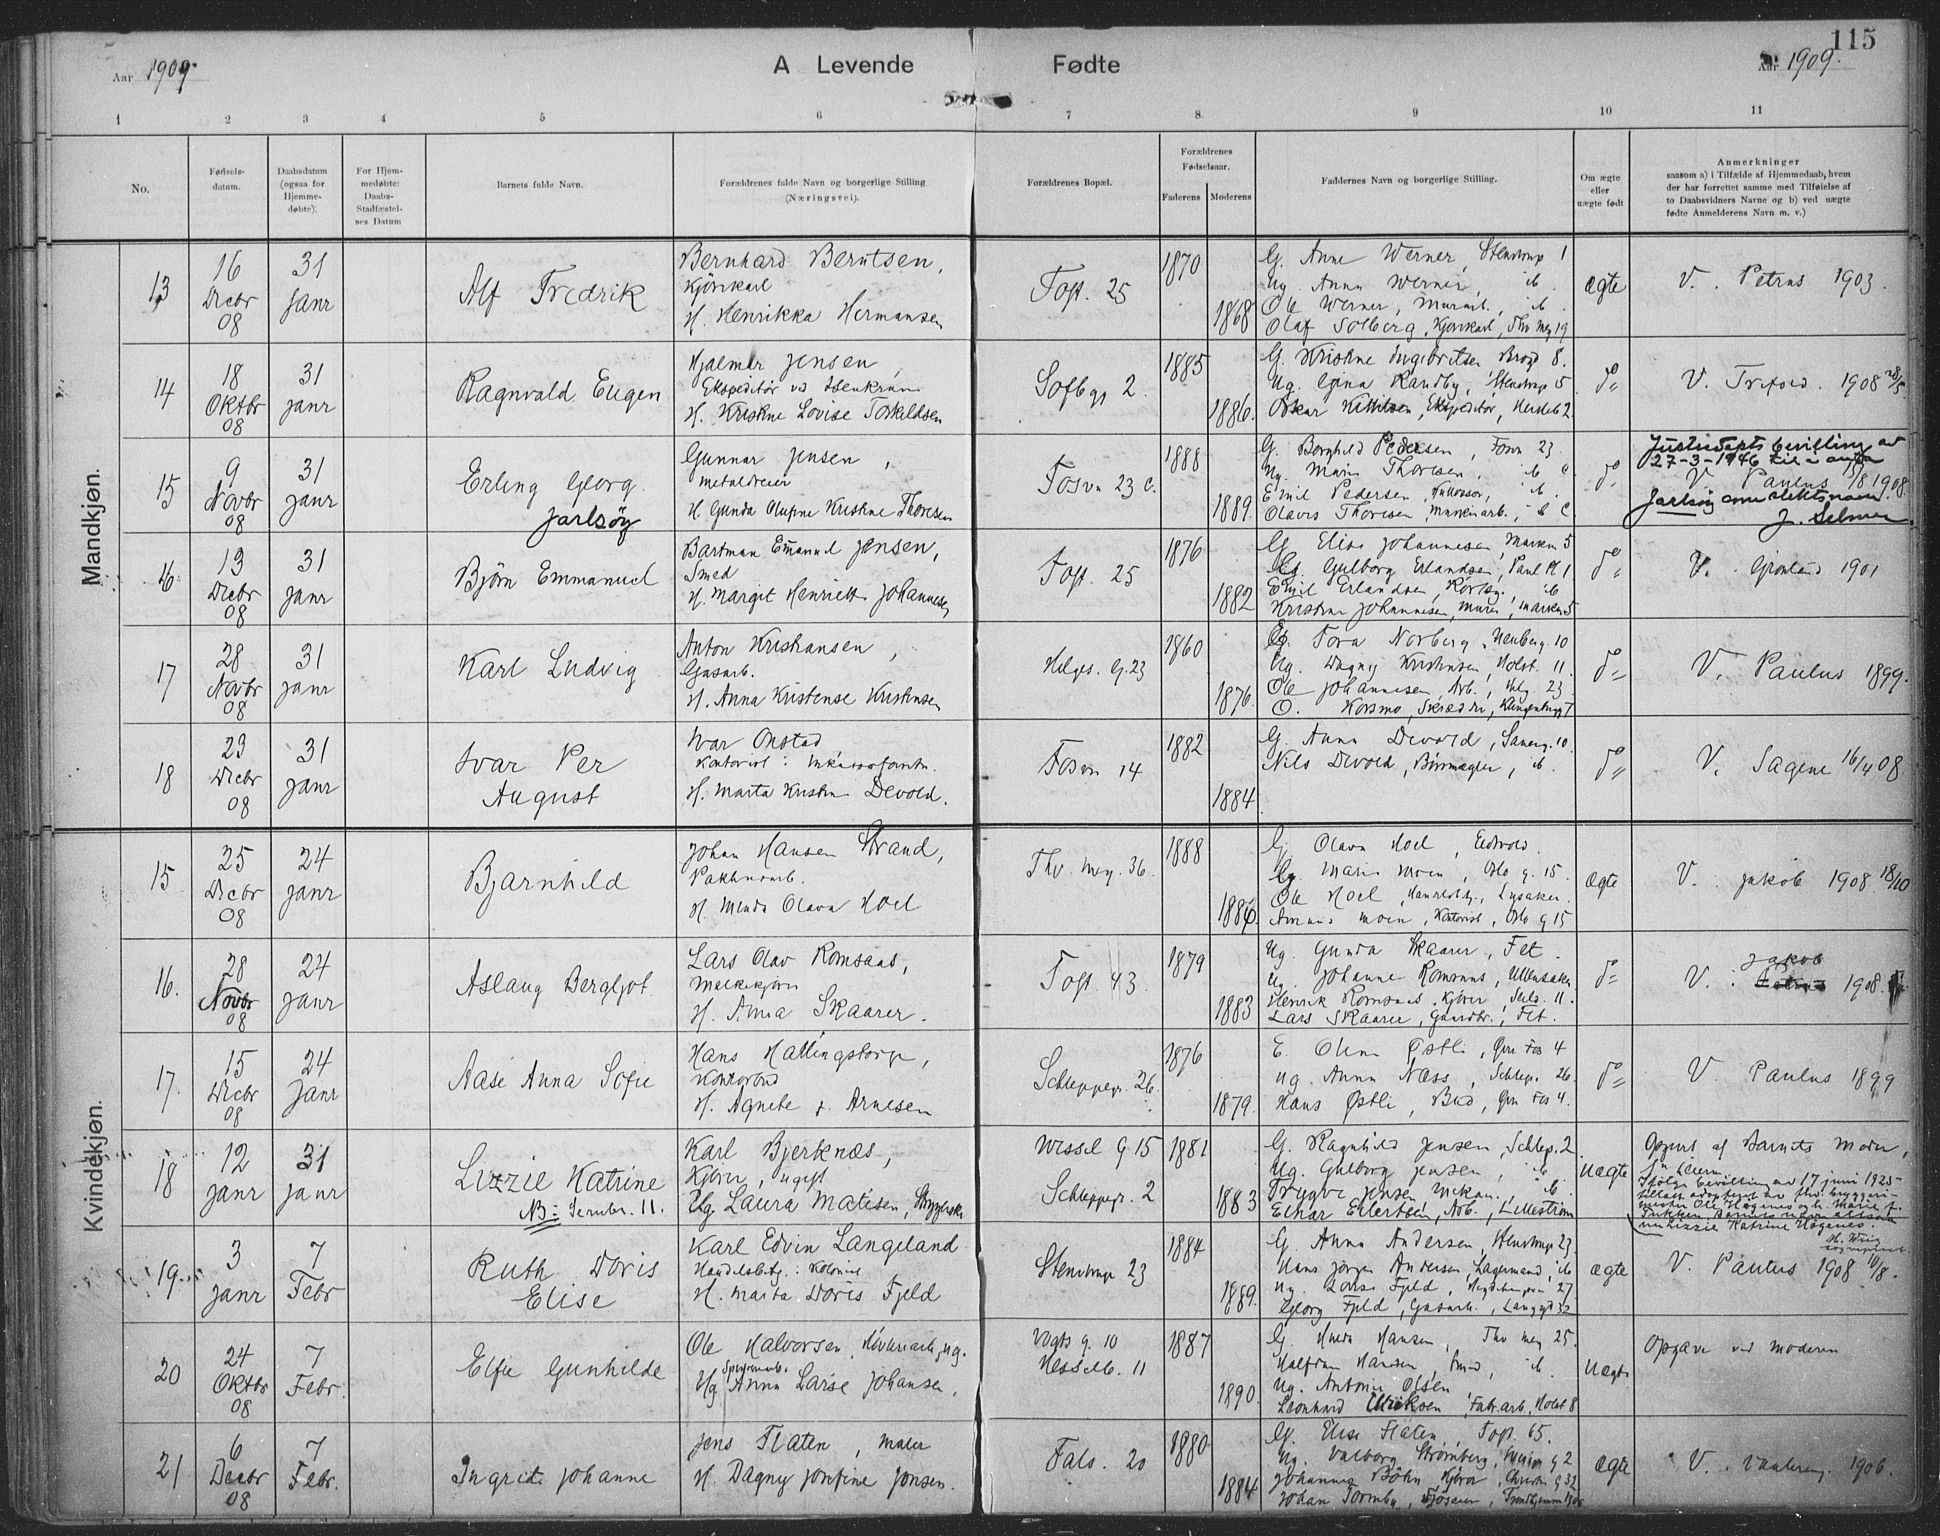 115
Aar 1909.
A Levende Fødte
Aar 1909.
1 2 3 4 5 6 7 8. 9 10 11
No.
Fødsels-
datum.
Daabsdatum
(ogsaa for
Hjemme-
døbte).
For Hjem-
medøbte:
Daabs-
Stadfæstel-
ses Datum
Barnets fulde Navn.
Forældrenes fulde Navn og borgerlige Stilling
(Næringsvei).
Forældrenes Bopæl.
Forældrenes
Fødselsaar.
Faderens Moderens
Faddernes Navn og borgerlige Stilling.
Om ægte
eller
uægte født
Anmerkninger
saasom a) i Tilfælde af Hjemmedaab, hvem
der har forrettet samme med Tilføielse af
to Daabsvidners Navne og b) ved uægte
fødte Anmelderens Navn m. v.)
Mandkjøn.
13
16
Decbr
08
31
Janr
Alf Fredrik
Bernhard Berntsen,
Kjørekarl
H. Henrikka Hermansen
Toft. 25
1870
1868
G. Anne Werner, Stenstrup 1
Ug. Anna Werner, ib.
Ole Werner, Murarb., ib.
Olaf Solberg, Kjørekarl, Thv Mey 19
ægte
V. Petrus 1903.
14
18
Oktbr
08
31
Janr
Ragnvald Eugen
Hjalmar Jensen,
Ekspeditør
H. Kristine Lovise Torkildsen
Sofbg. 2.
1885
1886.
G. Kristine Ingebretsen 8.
Ug. Gina Randby, Stenstrup 5
Oskar Kittilsen, Ekspeditør, 2
do
V. Trefold. 1908 28/5
15
9
Novbr
08
31
Janr
Erling Georg
Jarlsøy
Gunnar Jensen,
Metaldreier
H. Gunda Olufine Kristine Thoresen
Fosvn 23 c.
1888
1889.
G. Borghild Pedersen, Fosvn 23.
Ug. Marie Thoresen, ib c.
Emil Pedersen, ib.
Olavis Thoresen, Maskinarb., ib C
do
Justisdepts bevilling av
27-3-1946 til å anta
V. Paulus 16/8 1908.
Jarlsøy som slektsnavn.
J. Selmer.
16
13
Decbr
08
31
Janr
Bjørn Emmanuel
Bartman Emanuel Jensen,
Smed
H. Margit Henriette Johannesen
Toft. 25
1876
1882
G. Elise Johannesen, Marken 5
G. Gulborg Erlandsen, Paul Pl 1.
Emil Erlandsen, Rørlæg., ib
Kristian Johannesen, Murer, Marken 5
do
V. Grønland 1901
17
28
Novbr
08
31
Janr
Karl Ludvig
Anton Kristiansen,
Gasarb.
H. Anna Kristense Kristensen
Helges. G. 23
1860
1876.
G. Tora Norberg, Neuberg. 10
Ug. Dagny Kristensen, Holst. 11.
Ole Johannesen, Arb., Helg 23.
O. Korsmo, Skrædder, Klingenbergg 7
do
V. Paulus 1899.
18
23
Decbr
08
31
Janr
Ivar Per
August
Ivar Onstad
Kontorist i Inkassoforretn.
H. Marta Kristine Devold.
Fosvn 14
1882
1884
G. Anna Devold, Saner. 10.
Nils Devold, Børsmægler, ib.
do
V. Sagene 16/4 08.
Kvindekjøn.
15
25
Decbr
08
24
Janr
Bjarnhild
Johan Hansen Strand,
Pakhusarb.
H. Minda Olava Hoel
Thv. Mey. 36.
1888
1886
G. Olava Hoel, Eidsvold.
G. Marie Moen, Oslo g. 15.
Ole Hoel, Handelsbtj., Lysaker.
Amund Moen, Kontorist, Oslo g 15
ægte
V. Jakob 1908 18/10
16.
28
Novbr
08
24
Janr
Aslaug Bergljot.
Lars Olav Romsaas,
Melkekjører
H. Anna Skaarer.
Toft. 43.
1879
1883
Ug. Gunda Skaarer, Fet.
Ug. Johanne Romsaas, Ullensaker
Henrik Romsaas, Kjører, Seils. 11.
Lars Skaarer, Gaardbr., Fet.
do
Jakob
V. 1908.
17.
15
Decbr
08
24
Janr
Aase Anna Sofie
Hans Hallingstorp,
Kontorbud
H. Agnete f. Arnesen
Schleppegr. 26.
1876
1879.
E. Oline Østli, Øvn Fos 4
Ug. Anna Næss, Schlep. 26.
Hans Østli, Bud, Øvn Fos 4.
do
V. Paulus 1899
18
12
Janr
31
Janr
Lizzie Katrine
NB: Sernbr. 11.
Karl Bjerknæs,
Kjører, Ugift
Ug Laura Matisen, Strygerske
Wessel G 15
Schleppegr. 2
1881
1883
G. Ragnhild Jensen, Schlep. 2
Ug. Gulborg Jensen, ib.
Trygve Jensen, ib.
Einar Eilertsen, Arb., Lillestrøm
uægte
Opgivet af Barnets Moder,
Ifølge bevilling av 17 juni 1925
tillatt adoptert av fhv. bryggeri-
mester Ole Hogenes og h. Marie f.
Barnets navn altsaa
nu Lizzie Katrine Hogenes.
19.
3
Janr
7
Febr
Ruth Doris
Elise
Karl Edvin Langeland
Handelsbtj. i Kolonial
H. Marta Doris Fjeld
Stenstrup 23
1884
1889.
G. Anna Andersen, Stenstrup 23.
Hans Jørgen Andersen, Lagermand, ib
Ug. Louise Fjeld, 27
Georg Fjeld, Gasarb., Langgt 32
ægte
V. Paulus 1908 10/8.
20
24
Oktbr
08
7
Febr.
Elfie Gunhilde
Ole Halvorsen, Høvleriarb., ug.
Ug Anna Larise Johansen.
Vogts g. 10
Hesselb. 11
1887
1890.
G. Hulda Hansen, Thv Mey 25.
Halfdan Hansen, Smed, ib.
Ug. Antonie Olsen
Leonhard Eriksen, Fabr.arb., Holst 8
uægte
Opgave ved Moderen
21
6
Decbr
08
7
Febr.
Ingrid Johanne
Jens Flaten, Maler
H. Dagny Josefine Jensen.
Fals. 20
1880
1884
G. Elise Flaten, Toft. 65.
Ug. Valborg Strømberg, g 2
Johannes Bøhn, Kjører, Christies g 32
Johan Tormby, Trondhjemsvn
ægte
V. Vaalereng. 1906.